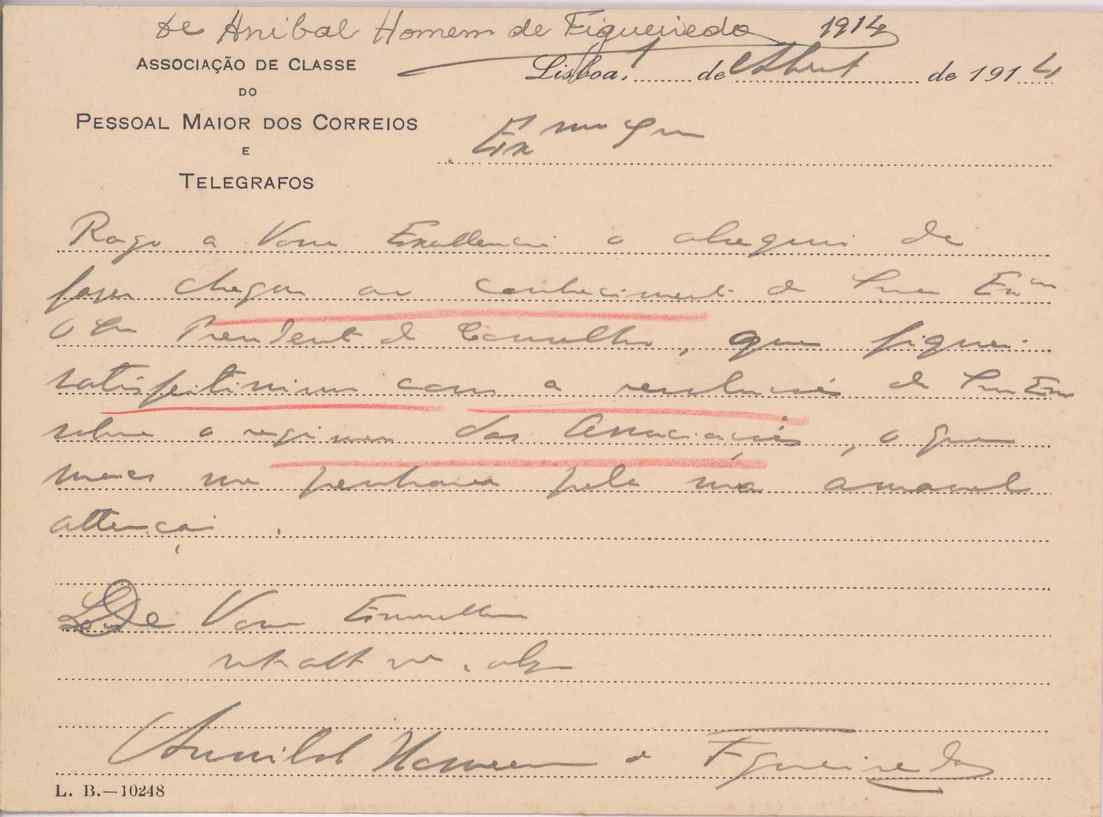 De Anibal Homem de Figueiredo 1914
ASSOCIAÇÃO DE CLASSE
DO
PESSOAL MAIOR DOS CORREIOS
E
TELEGRAFOS
Lisboa, de Abril de 1914
Exmo Snr
Rogo a Vossa Excellencia o obsequio de
fazer chegar ao conhecimento de Sua Exª
o Snr Presidente do Conselho, que fiquei
satisfeitissimo com a resolução de Sua Exª
sobre o regimen das Associações, o que
mais me penhora pela sua amavel
attenção.
De Vossa Excellencia
Annibal Homem de Figueiredo
L. B.—10248